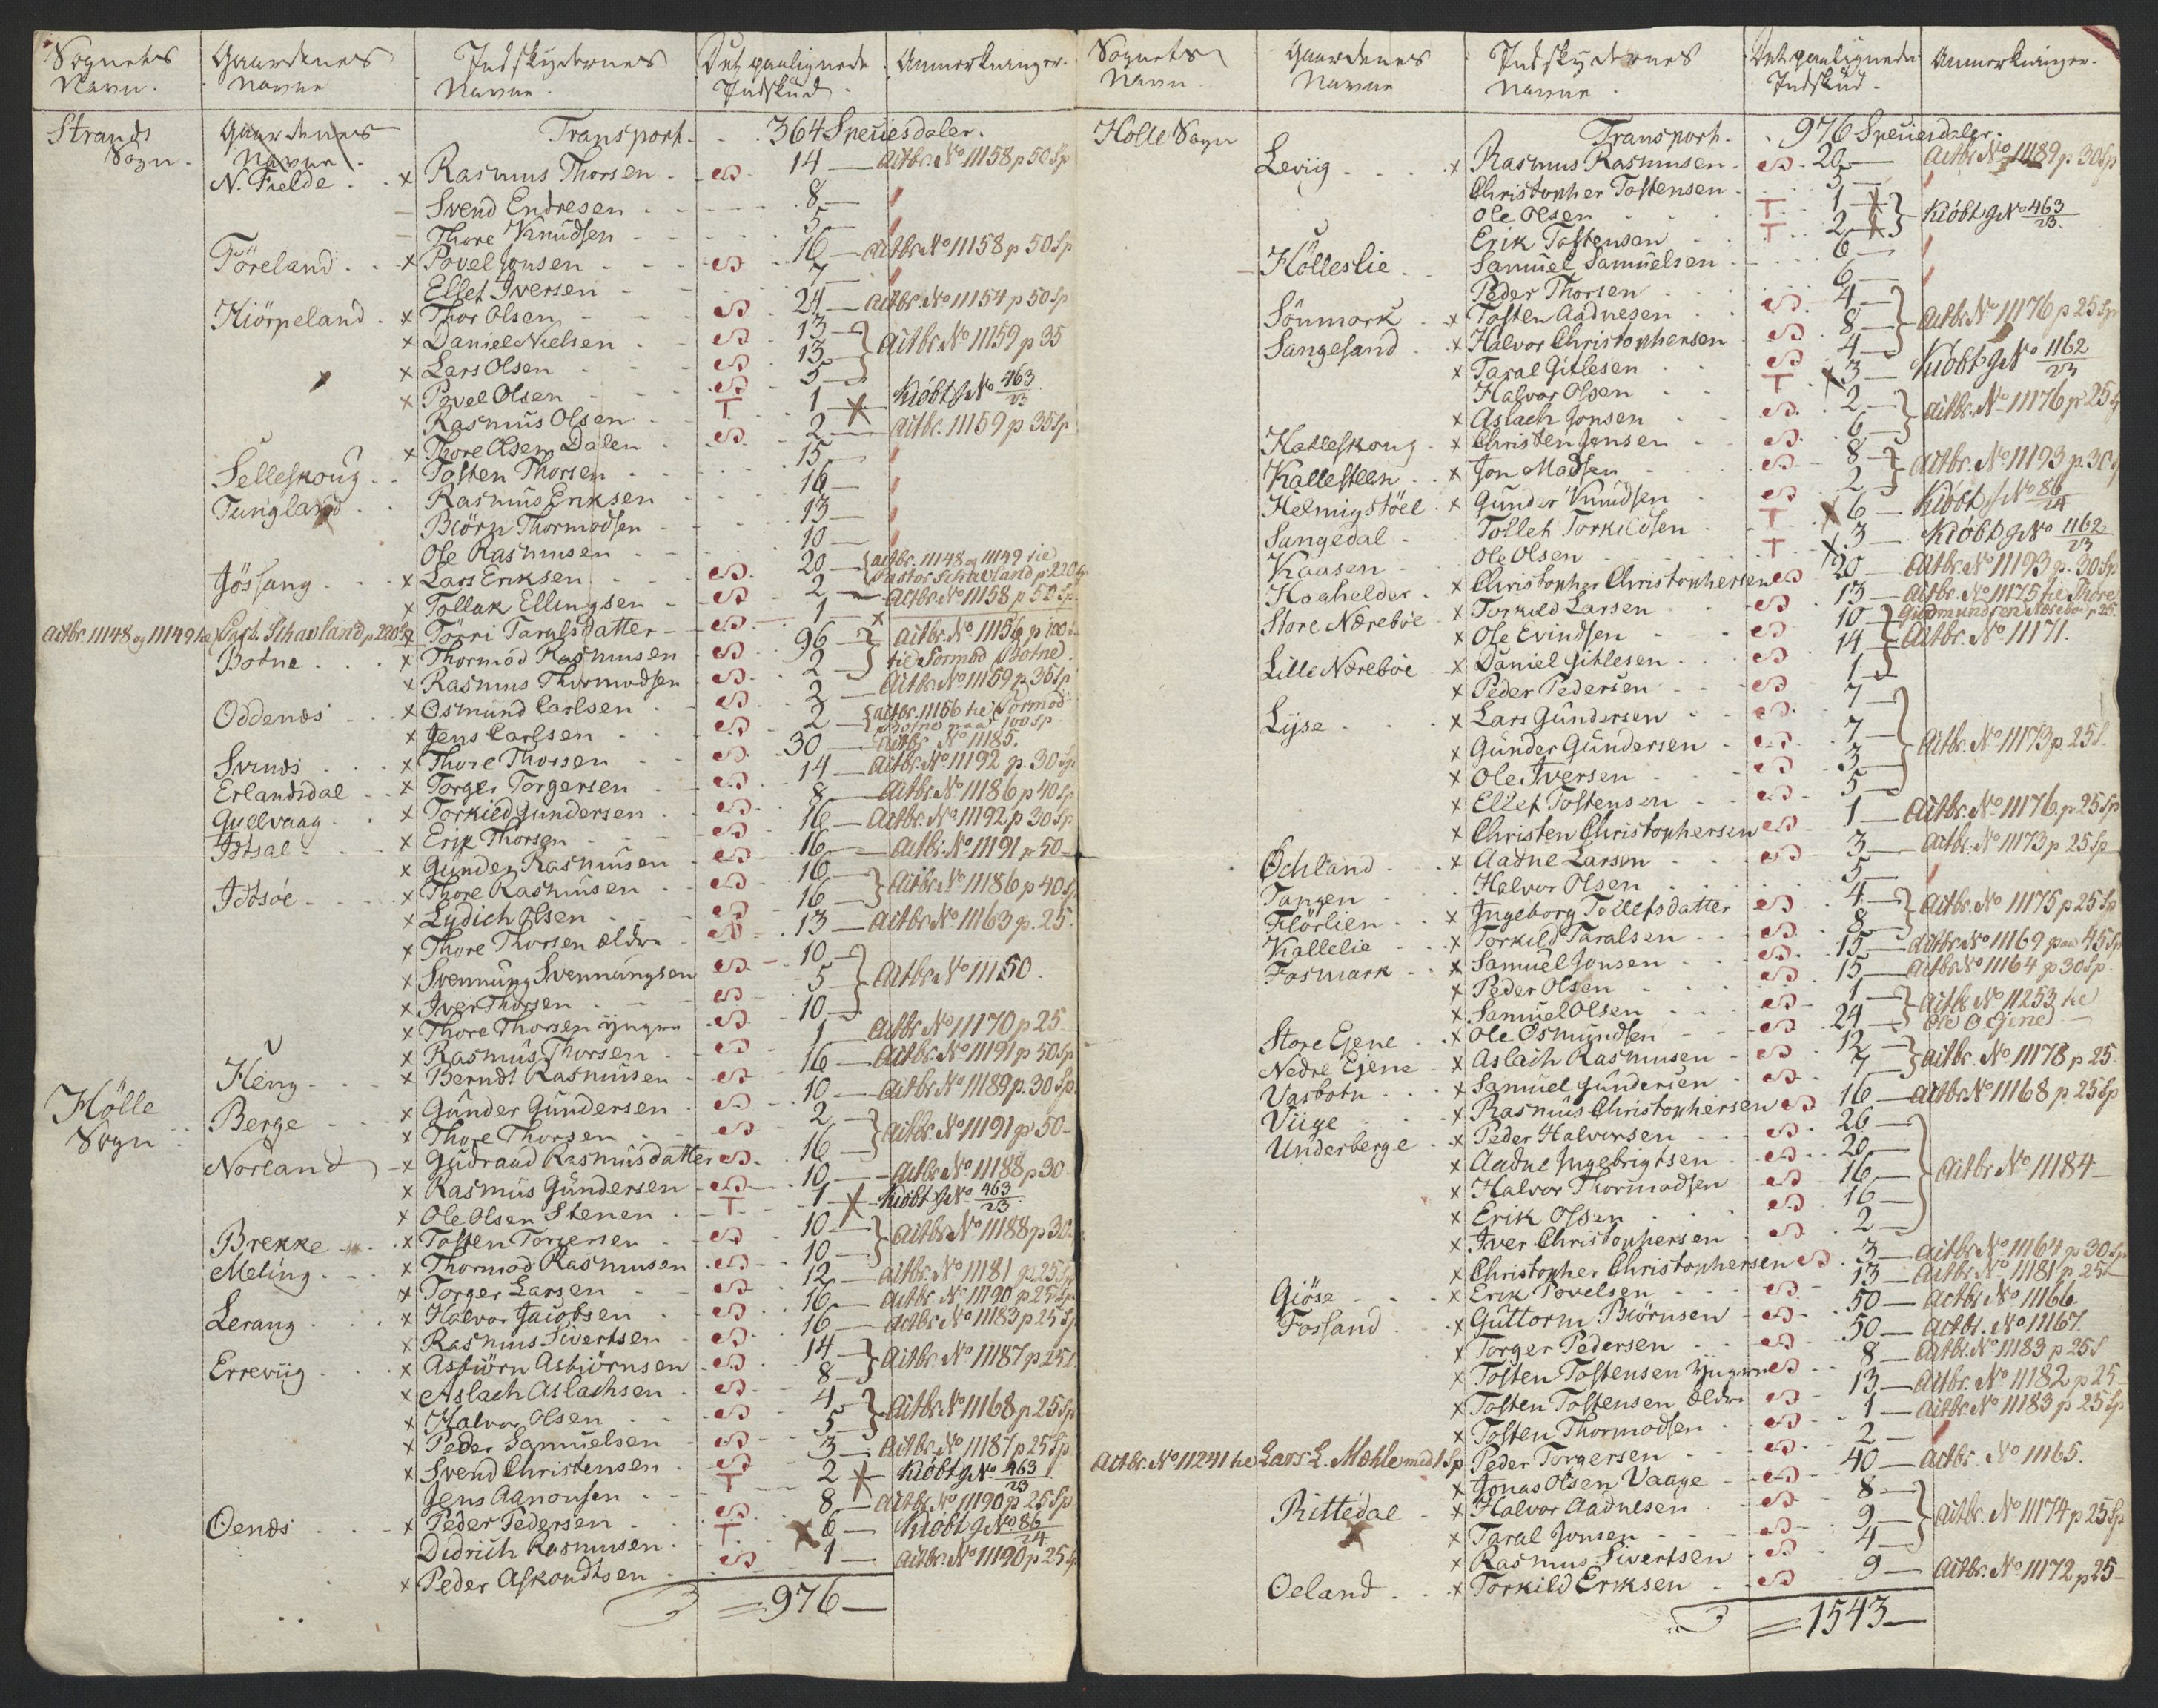 Sognets Navn. Gaardenes Navne Indskydernes Navne. Det paalignede Indskud. Anmerkninger.
Strands Sogn. Gaardenes Navne. Transport. 364 Speciesdaler.
N. Fielde x Rasmus Thorsen S. 14 Actbr. No 11158 p 50 Sp
Svend Endresen 8
Thore Knudsen 5
Töreland x Povel Jonsen S. 16 Actbr No 11158 p 50 Sp
Ellef Iversen 7
Kiörpeland x Thor Olsen S. 24 Actbr. No 11154 p 50 Sp
x Daniel Nielsen S. 13 } Actbr No 11159 p 35
x Lars Olsen S. 13
x Povel Olsen S. 5
Rasmus Olsen T 1 x Kiöbt g No 463/23
x Thore Olsen Dalen S. 2 Actbr. 11159 p 35 Sp
Selleskoug Tosten Thorsen 15
Tungland Rasmus Eriksen 16
Biörn Thormodsen 13
Ole Rasmusen 10
Jössang x Lars Eriksen S. 20 { actbr. 11148 og 11149 til Pastor Schavland p 220 Sp
x Tollak Ellingsen S. 2 Actbr No 11158 p 50 Sp
Actbr. 11148 og 11149 til Past. Schavland p 220 Sp x Törri Taralsdatter 1 x
Botne x Thormod Rasmusen S. 96 } Actbr. No 11156 p 100 til Tormod Botne
x Rasmus Thormodsen S. 2
Oddenæs x Osmund Carlsen S. 2 Actbr No 11159 p 35 Sp
x Jens Carlsen S. 2 { actbr. 11156 til Tormod Botne paa 100 Sp
Svines x Thore Thorsen S. 30 Actbr No 11185.
Erlandsdal x Torger Torgersen S. 14 Actbr No 11192 p. 30 Sp
Gudvaag x Torkild Gundersen S. 8 Actbr. No 11186 p 40 Sp
Idtsal x Erik Thorsen S. 16 Actbr. No 11192 p 30 Sp
x Gunder Rasmusen S. 16 Actbr. No 11191 p 50
Idtsöe x Thore Rasmusen S. 16 } Actbr No 11186 p 40 Sp
x Lydich Olsen S. 16
x Thore Thorsen Eldre S. 13 Actbr No 11163 p. 25.
x Svennung Svennungsen S. 10 } Actbr No 11150.
x Iver Thorsen S. 5
x Thore Thorsen Yngre S. 10
x Rasmus Thorsen S. 1 Actbr No 11170 p 25
Heng x Berndt Rasmusen S. 16 Actbr No 11191 p 50 Sp
Hölle Sogn. Berge x Gunder Gundersen S. 10 Actbr No 11189 p. 30 Sp.
x Thore Thorsen S. 2 } Actbr. No 11191 p 50
Norland x Gudrand Rasmusdatter S. 16
x Rasmus Gundersen S. 10 Actbr No 11188 p 30
x Ole Olsen Stenen T 1 x Kiöbt g No 463/23
Brekke x Tosten Torgersen S. 10 } Actbr No 11188 p 30
Meling x Thormod Rasmusen S. 10
x Torger Larsen S. 12 actbr. No 11181 p. 25 Sp
Lerang x Halvor Jacobsen S. 16 Actbr. No 11190 p 25 Sp
x Rasmus Sivertsen S. 16 Actbr No 11183 p 25 Sp
Erreviig x Asbiörn Asbiörnsen S. 14 } Actbr. No 11187 p 25 S.
x Aslach Aslachsen S. 8
x Halvor Olsen S. 4 } Actbr No 11168 p 25 Sp
x Peder Samuelsen S. 5
x Svend Christensen S. 3 Actbr No 11187 p 25 Sp
Jens Aanonsen T 2 x Kiöbt g No 463/23
Oenæs x Peder Pedersen S. 8 Actbr No 11190 p 25 Sp
Didrich Rasmusen T. x 6 Kiöbt g No 86/24
x Peder Askoudtsen S. 1 Actbr. No 11190 p 25 Sp
= 976
Sognets Navn Gaardenes Navne Indskydernes Navne. Det paalignede Indskud. Anmerkninger.
Holle Sogn Transport. 976 Speciesdaler.
Leviig x Rasmus Rasmusen S. 20 Actbr No 11189 p. 30 Sp
Christopher Tostensen 5
Ole Olsen T 1 x } Kiöbt g No 463/23.
Erik Tostensen T 2 x
Hölleslie Samuel Samuelsen 6
Peder Thorsen 6
Sönmork x Tosten Aadnesen S. 4 } Actbr No 11176 p 25 Sp
Sangesand x Halvor Christophersen S. 8
x Taral Gitlesen S. 4
Halvor Olsen T x 3 Kiöbt g No 1162/23
x Aslach Jonsen S. 2 } actbr. No 11176 p 25 Sp
Hatleskoug x Christen Jonsen S. 6
Kallesteen x Jon Madsen S. 8 } Actbr. No 11193 p. 30 S
Helmigstöel x Gunder Knudsen S. 2
Sangedal Tollef Torkildsen T x 6 Kiöbt g No 86/24
Kaasen Ole Olsen T x 3 Kiöbt g No 1162/23
Hoghelder x Christopher Christophersen S. 20 Actbr. No 11193 p. 30 Sp.
Store Nærebøe x Torkild Larsen S. 13 Actbr. No 11175 til Thore Gudmundsen Nærebøe p 25.
x Ole Evindsen S. 10 } Actbr. No 11171.
Lille Nærebøe x Daniel Gitlesen S. 14
x Peder Pedersen S. 1
Lyse x Lars Gundersen S. 7 } Actbr. No 11173 p 25 S.
x Gunder Gundersen S. 7
x Ole Iversen S. 3
x Ellef Tostensen S. 5
x Christen Christophersen S. 1 Actbr. No 11176. p. 25 Sp
Öchland x Aadne Larsen S. 3 Actbr. No 11173 p 25 Sp
Tangen Halvor Olsen 5
Flörlien x Ingeborg Tollefsdatter S. 4 } Actbr No 11175 p 25 Sp
Kallelie x Torkild Taralsen S. 8
Fosmark x Samuel Jonsen S. 15 Actbr No 11169 paa 45 Sp
x Peder Olsen S. 15 Actbr No 11164 p 30 Sp.
x Samuel Olsen S. 1 } Actbr No 11253 til Ole O Ejene
Store Ejene x Ole Osmundsen S. 24
Nedre Ejene x Aslach Rasmusen S. 12 } actbr. No 11178 p 25.
Vasbotn x Samuel Gundersen S. 7
Viige x Rasmus Christophersen S. 16 Actbr No 11168 p. 25 Sp
Underberge x Peder Halvorsen S. 26 } Actbr No 11184
x Aadne Ingebrigtsen S. 20
x Halvor Thormodsen S. 16
x Erik Olsen S. 16
x Iver Christophersen S. 2
x Christopher Christophersen S. 3 Actbr. No 11164 p 30 Sp
Giöse x Erik Povelsen S. 13 Actbr No 11181 p 25
Fossand x Guttorm Biörnsen S. 50 Actbr No 11166.
x Torger Pedersen S. 50 Actbr. No 11167.
x Tosten Tostensen Yngre S. 8 Actbr. No 11183 p 25 S
x Tosten Tostensen Eldre S. 13 Actbr. No 11182 p 25
x Tosten Thormodsen S. 1 Actbr No 11183 p 25 Sp
Actbr. No 11241 til Lars L. Mæhle med 1 Sp Peder Torgersen S. 2
x Jonas Olsen Vaage S. 40 Actbr. No 11165.
Rittedal x Halvor Aadnesen S. 8 } Actbr. No 11174 p 25 Sp
x Taral Jonsen S. 9
x Rasmus Sivertsen S. 4
Oeland x Torkild Eriksen S. 9 Actbr. No 11172 p 25
= 1543